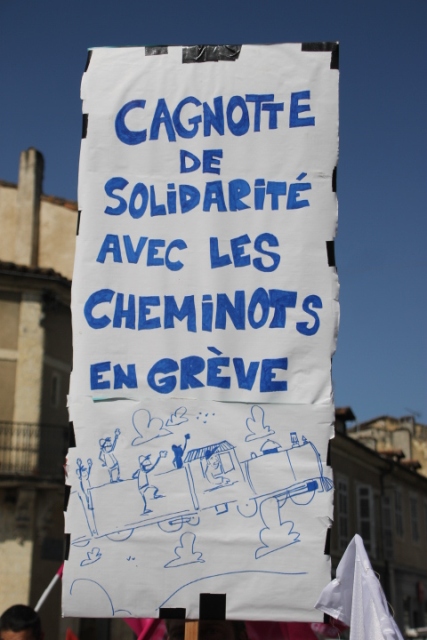 CAGNOTTE
DE
SOLIDARITÉ
AVEC LES
CHEMINOTS
EN GRÈVE